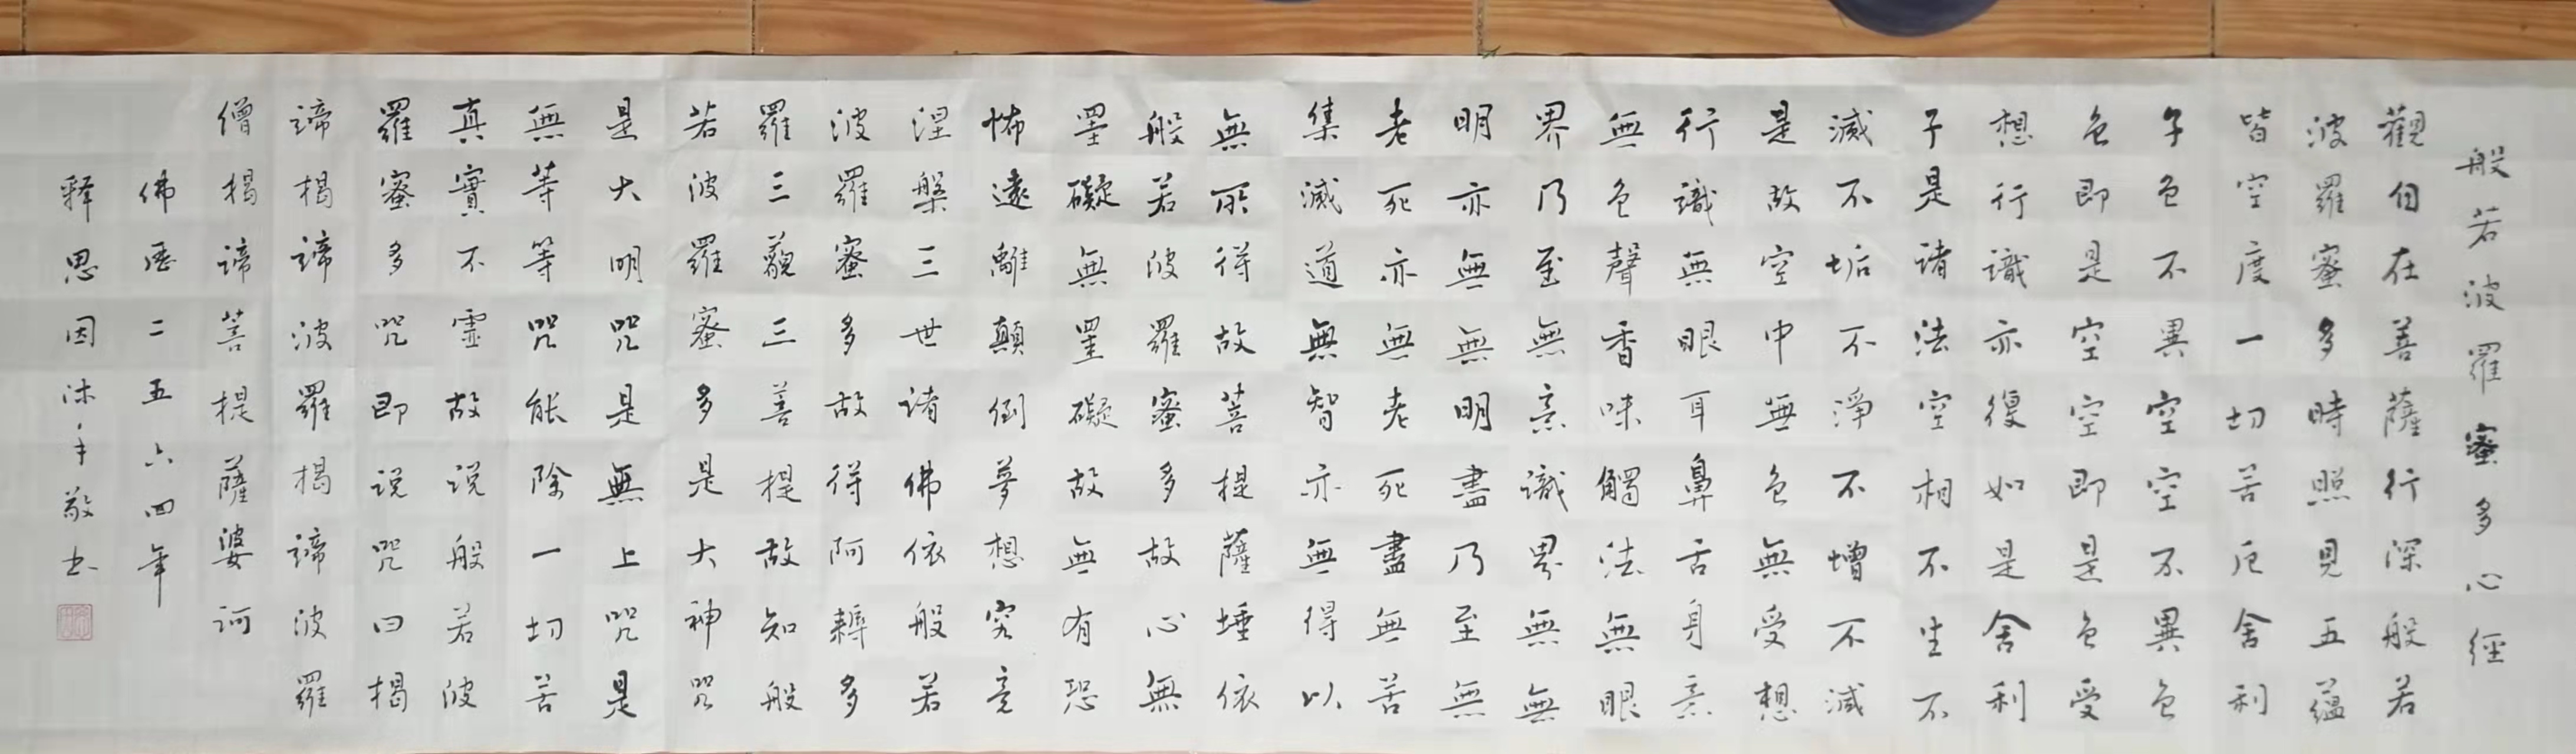 般若波羅蜜多心經
觀自在菩薩行深般若
波羅蜜多時照見五蘊
皆空度一切苦厄舍利
子色不異空空不異色
色即是空空即是色受
想行識亦復如是舍利
子是諸法空相不生不
滅不垢不淨不增不減
是故空中無色無受想
行識無眼耳鼻舌身意
無色聲香味觸法無眼
界乃至無意識界無無
明亦無無明盡乃至無
老死亦無老死盡無苦
集滅道無智亦無得以
無所得故菩提薩埵依
般若波羅蜜多故心無
罣礙無罣礙故無有恐
怖遠離顛倒夢想究竟
涅槃三世諸佛依般若
波羅蜜多故得阿耨多
羅三藐三菩提故知般
若波羅蜜多是大神咒
是大明咒是無上咒是
無等等咒能除一切苦
真實不虛故說般若波
羅蜜多咒即說咒曰揭
諦揭諦波羅揭諦波羅
僧揭諦菩提薩婆訶
佛歷二五六四年
釋思因沐手敬书